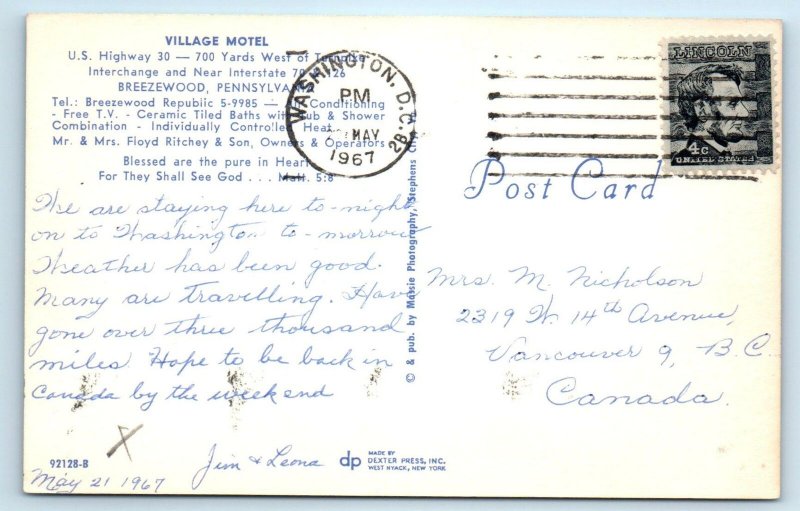 VILLAGE MOTEL
U.S. Highway 30 — 700 Yards West of Turnpike
Interchange and Near Interstate 70 26
BREEZEWOOD, PENNSYLVANIA
Tel.: Breezewood Republic 5-9985 — Conditioning
- Free T.V. - Ceramic Tiled Baths with Tub & Shower
Combination - Individually Controlled Heat
Mr. & Mrs. Floyd Ritchey & Son, Owners & Operators
Blessed are the pure in Heart
For They Shall See God . . . Matt. 5:8
We are staying here to-night
on to Washington to-morrow
Weather has been good.
Many are travelling. Have
gone over three thousand
miles. Hope to be back in
Canada by the weekend
X
Jim & Leona
92128-B
May 21 1967
dp
MADE BY
DEXTER PRESS, INC.
WEST NYACK, NEW YORK
© & pub. by Massie Photography, Stephens City,
WASHINGTON, D.C.
PM
MAY
1967
LINCOLN
4c
UNITED STATES
Post Card
Mrs. M. Nicholson
2319 W. 14th Avenue,
Vancouver 9, B.C.
Canada.